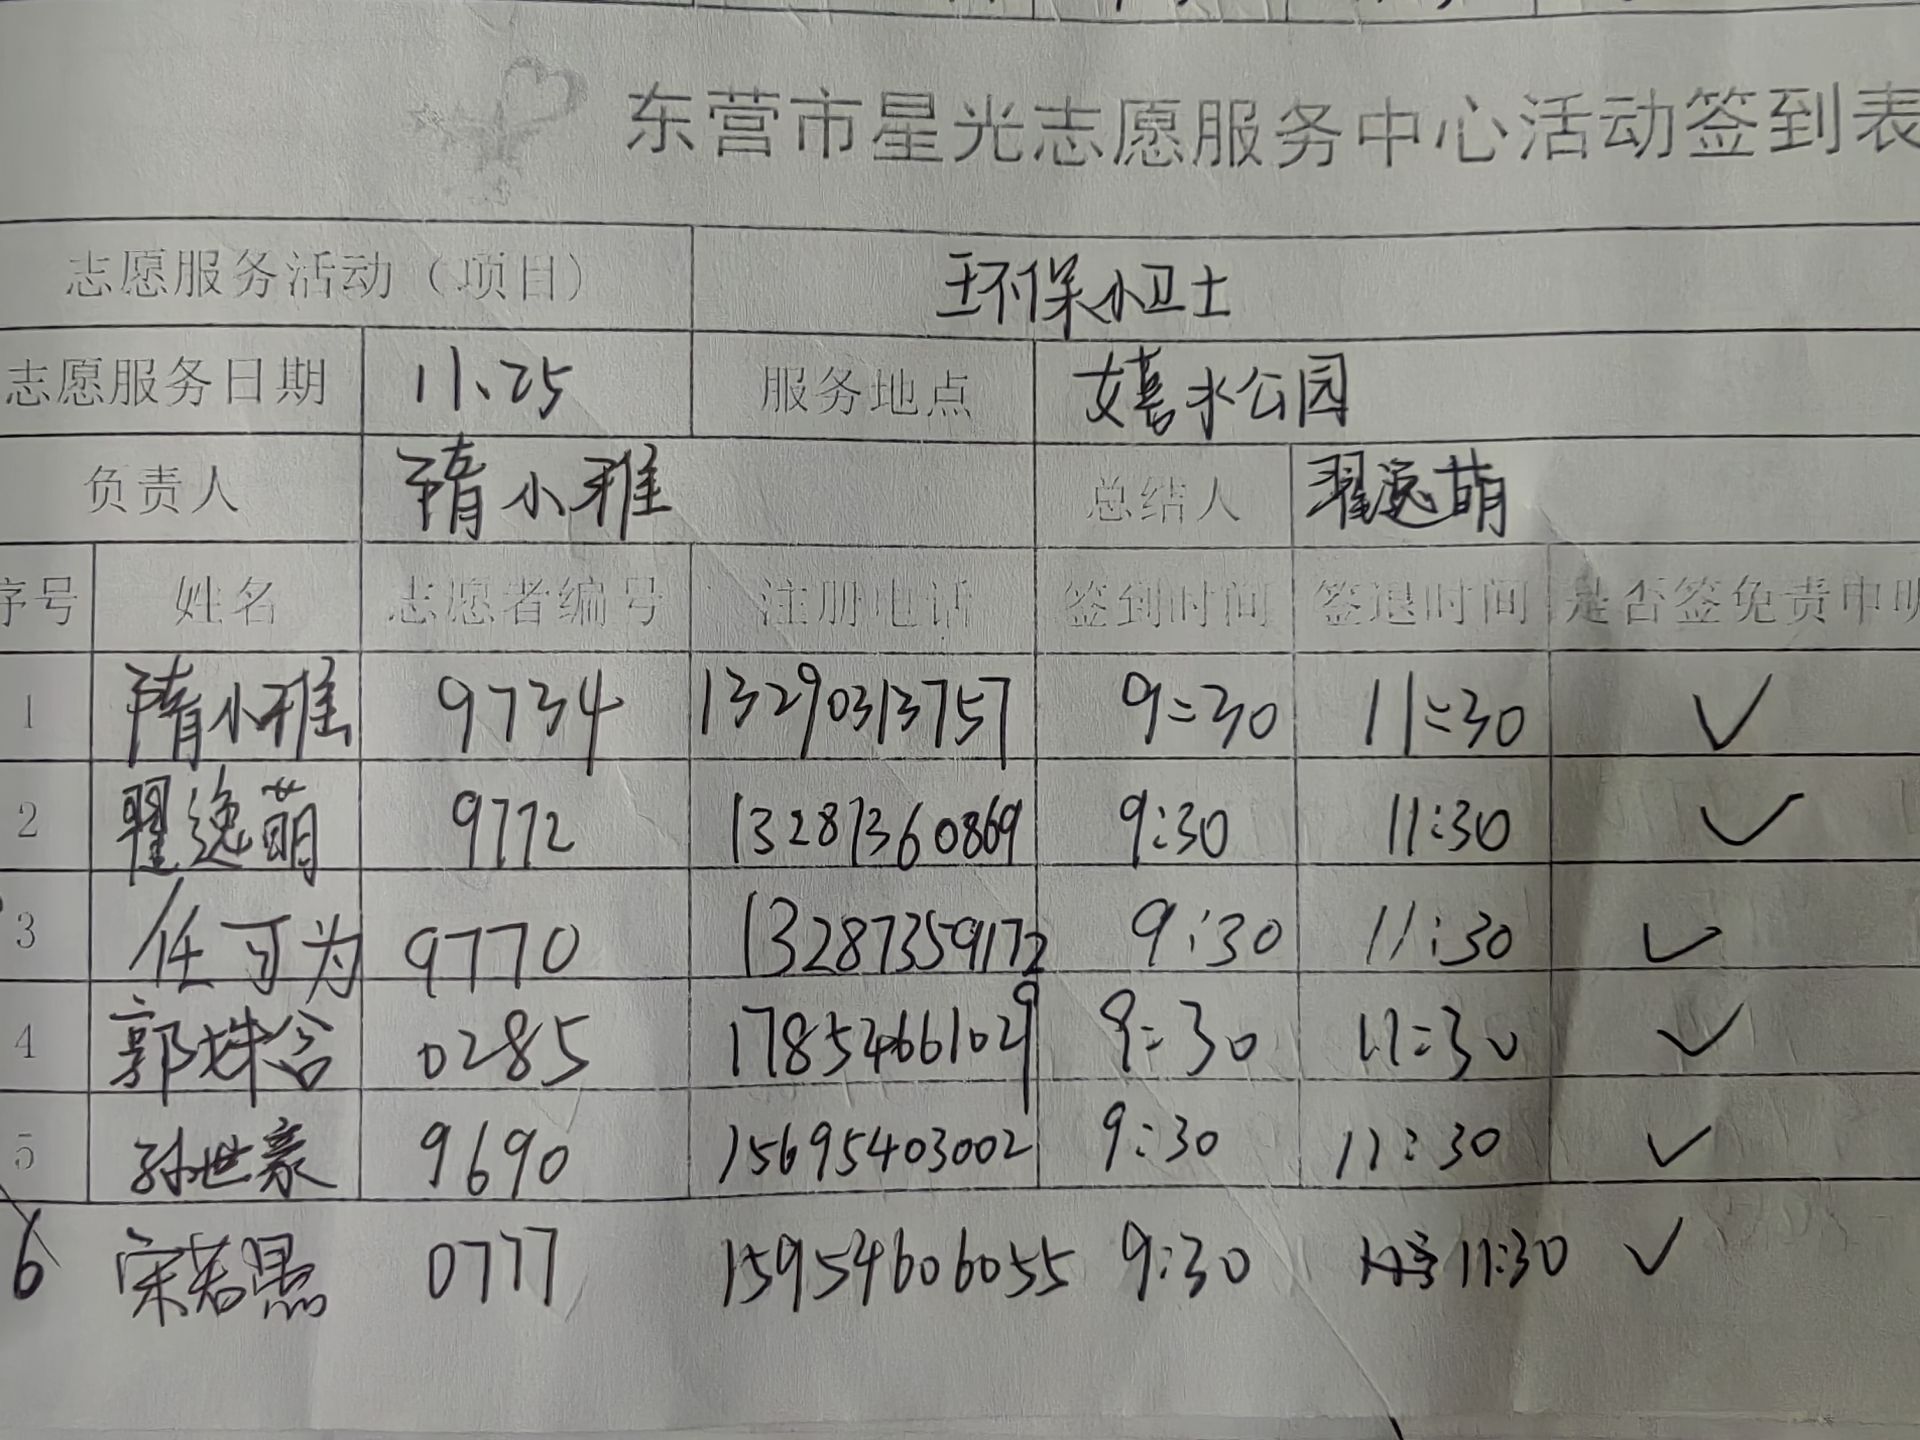 东营市星光志愿服务中心活动签到表
志愿服务活动（项目） 环保小卫士
志愿服务日期 11、25 服务地点 嬉水公园
负责人 隋小雅 总结人 翟逸萌
序号 姓名 志愿者编号 注册电话 签到时间 签退时间 是否签免责申明
1 隋小雅 9734 13290313757 9:30 11:30 ✓
2 翟逸萌 9772 13287360869 9:30 11:30 ✓
3 任可为 9770 13287359172 9:30 11:30 ✓
4 郭姝含 0285 17852661029 9:30 11:30 ✓
5 孙世豪 9690 15695403002 9:30 11:30 ✓
6 宋若愚 0777 15954606055 9:30 11:30 ✓